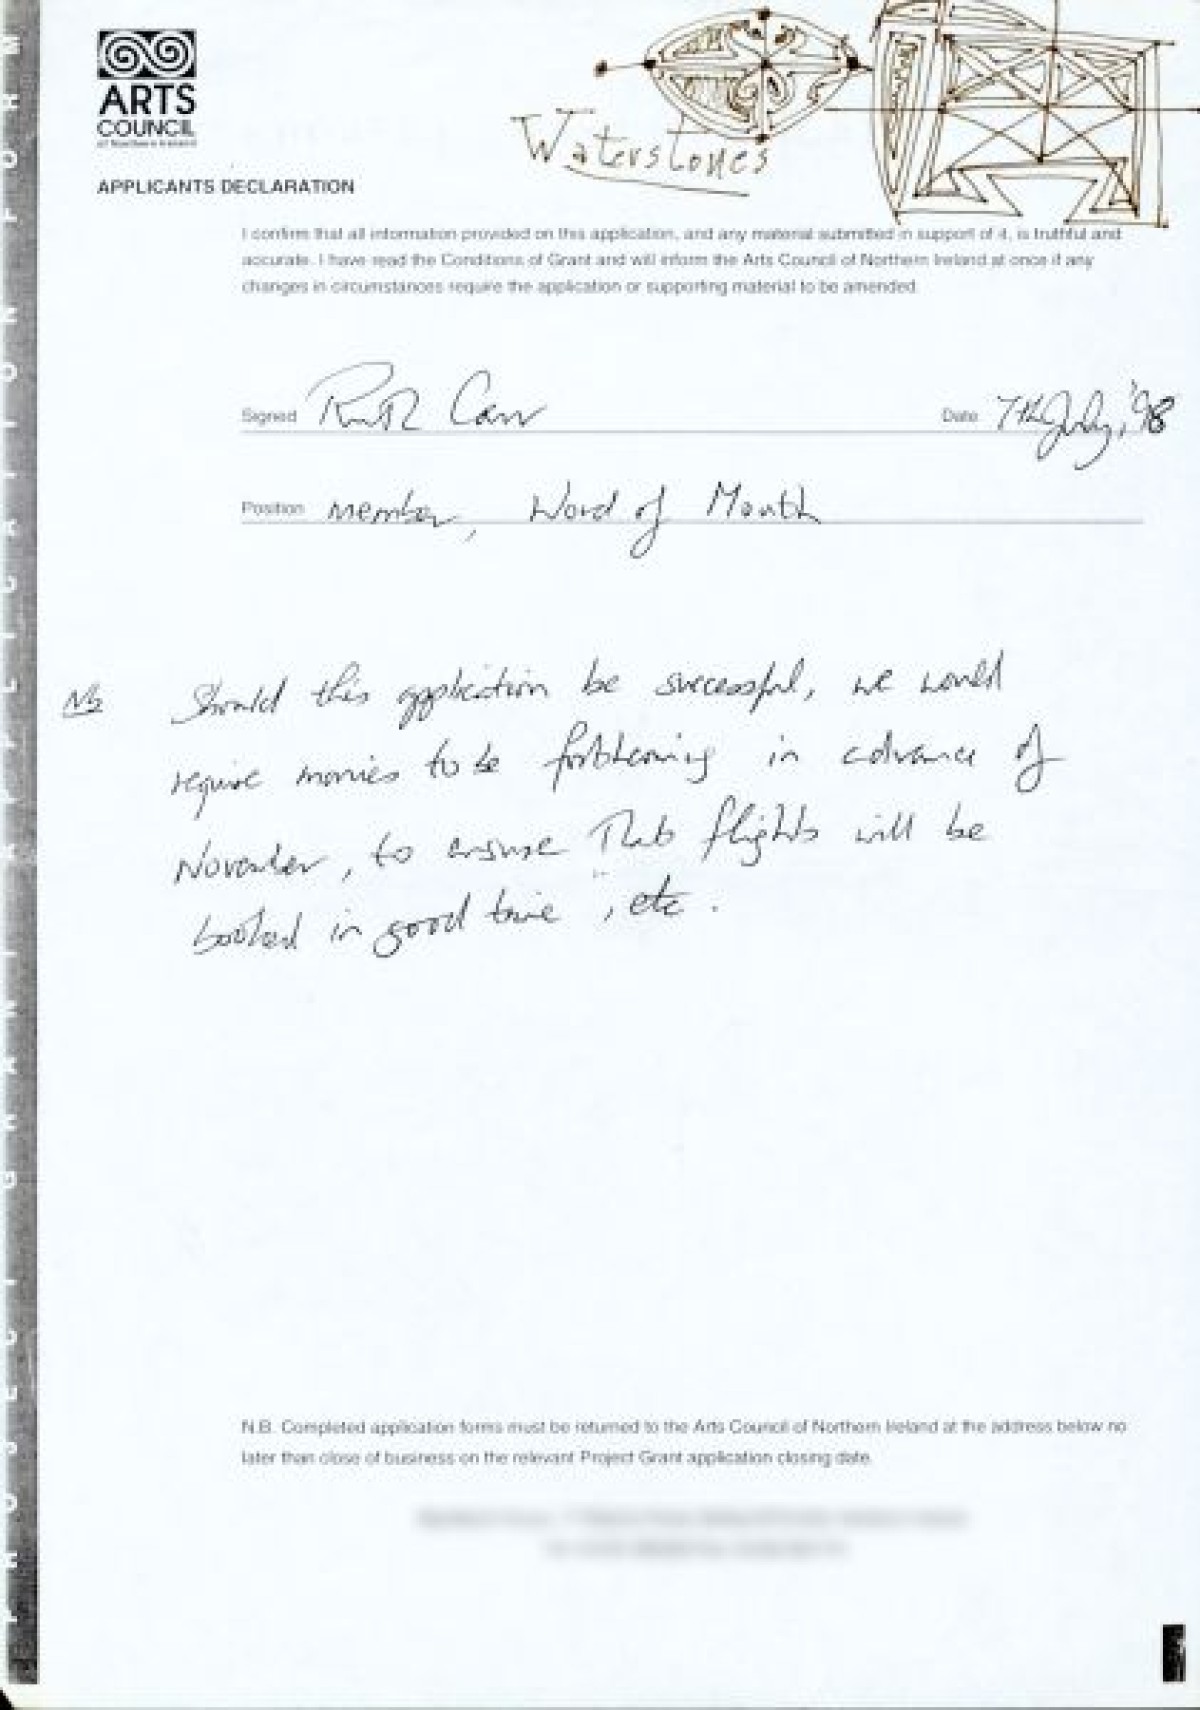 ARTS
COUNCIL
of Northern Ireland
Waterstones
APPLICANTS DECLARATION
I confirm that all information provided on this application, and any material submitted in support of it, is truthful and
accurate. I have read the Conditions of Grant and will inform the Arts Council of Northern Ireland at once if any
changes in circumstances require the application or supporting material to be amended.
Signed Ruth Carr Date 7th July, '98
Position member, Word of Mouth
NB Should this application be successful, we would
require monies to be forthcoming in advance of
November, to ensure that flights will be
booked in good time, etc.
N.B. Completed application forms must be returned to the Arts Council of Northern Ireland at the address below no
later than close of business on the relevant Project Grant application closing date.
PROJECT GRANT APPLICATION FORM